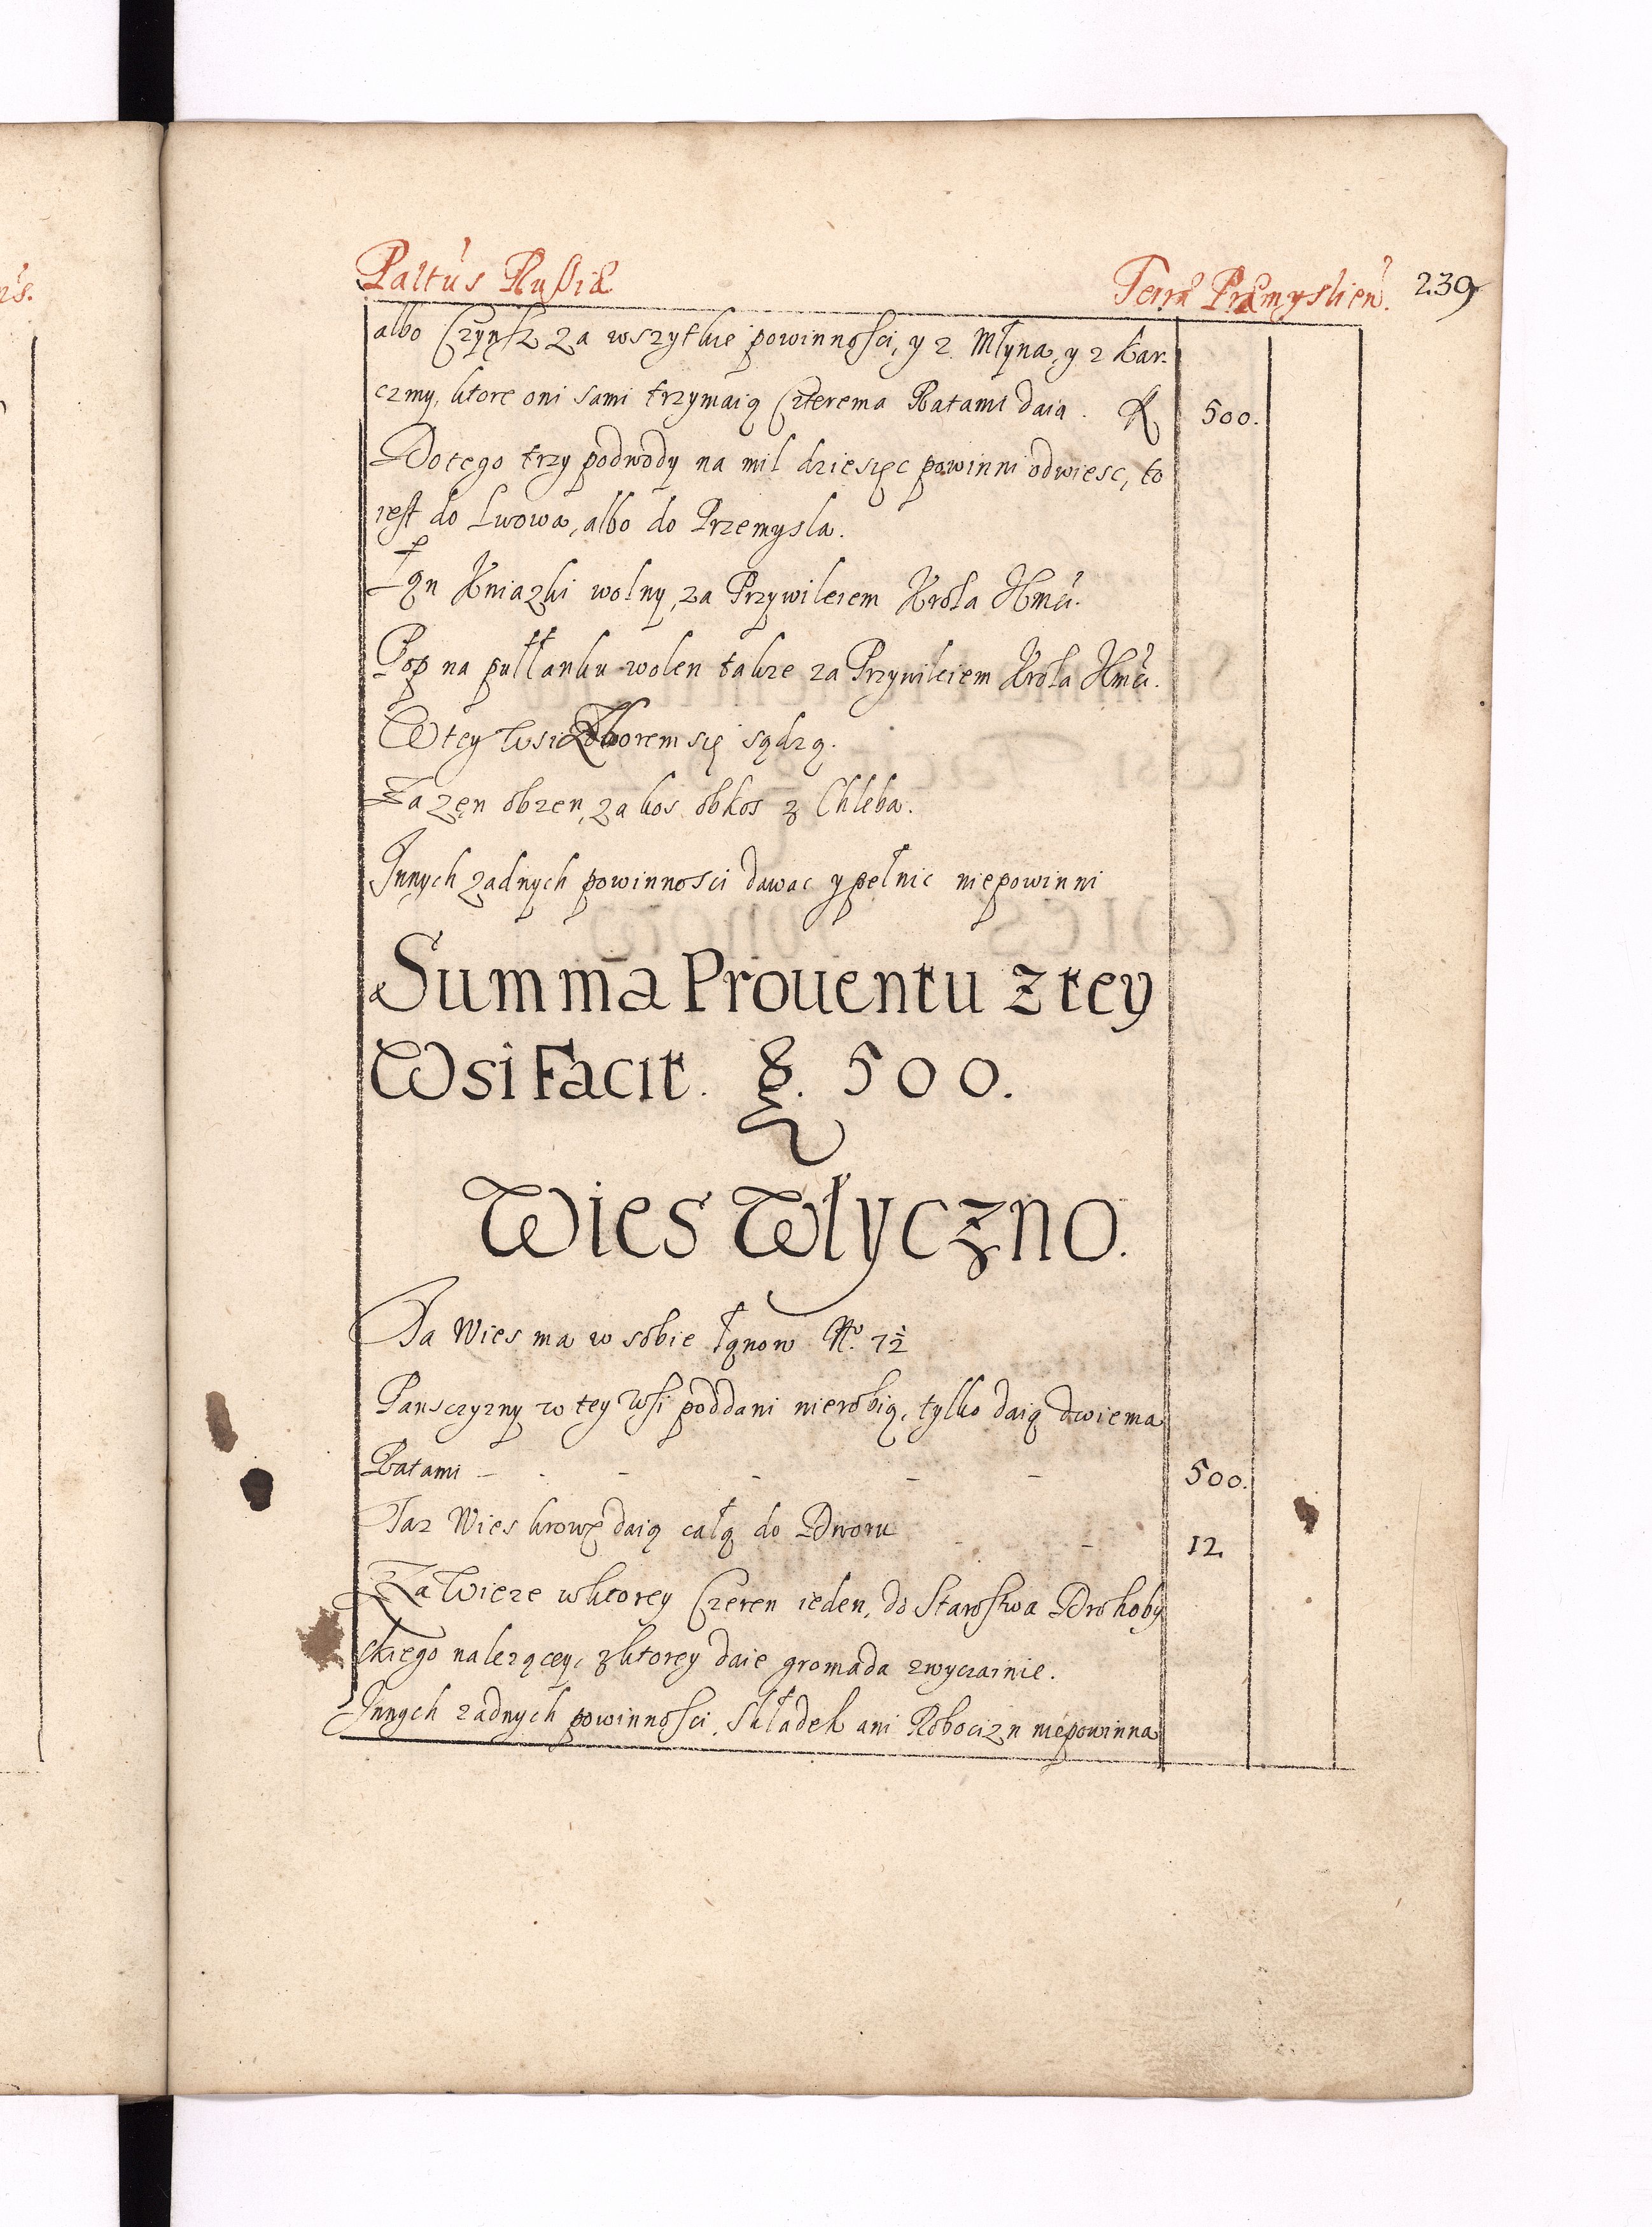 Paltus Russiæ
Terræ Præmyslien. 239
albo Czynsz za wszytkie powinnosci, y z Młyna, y z Kar-
czmy, ktore oni sami trzymaią Czterema Ratami daią. 500.
Do tego trzy podwody na mil dziesięc powinni odwiesc, to
iest do Lwowa, albo do Przemysla.
Łan Kniazki wolny, za Przywileiem Krola Jmci.
Pop na pułłanku wolen takze za Przywileiem Krola Jmci.
W tey Wsi Zborem się sądzą.
Za zęn obzen, za kos obkos z Chleba.
Innych zadnych powinnosci dawac y pełnic niepowinni
Summa Prouentu z tey
Wsi Facit. 500.
Wies Wlyczno.
Ta Wies ma w sobie łanow No. 7½
Panszczyzny w tey Wsi poddani nierobią, tylko daią dwiema
Ratami - - - - - - 500.
Taz Wies krowę daią całą do Dworu - - 12.
Za Wieze w ktorey Czeren ieden, do Starostwa Drohoby
ckiego nalezącey, z ktorey daie gromada zwyczainie.
Innych zadnych powinnosci, Składek ani Robocizn niepowinna